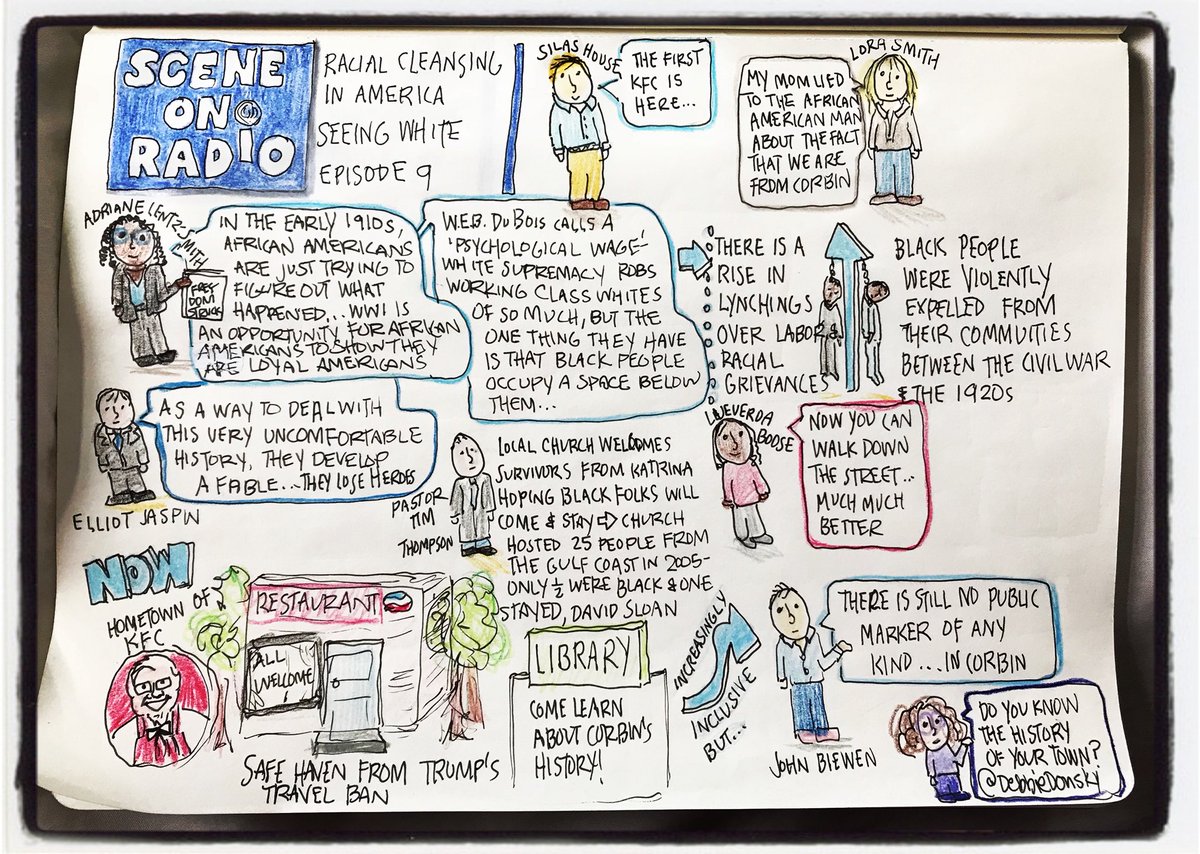 SCENE
ON
RADIO
RACIAL CLEANSING
IN AMERICA
SEEING WHITE
EPISODE 9
SILAS HOUSE
THE FIRST
KFC IS
HERE...
LORA SMITH
MY MOM LIED
TO THE AFRICAN
AMERICAN MAN
ABOUT THE FACT
THAT WE ARE
FROM CORBIN
ADRIANE LENTZ-SMITH
FREE
DOM
STRUGGLES
IN THE EARLY 1910S,
AFRICAN AMERICANS
ARE JUST TRYING TO
FIGURE OUT WHAT
HAPPENED... WWI IS
AN OPPORTUNITY FOR AFRICAN
AMERICANS TO SHOW THEY
ARE LOYAL AMERICANS
W.E.B. DU BOIS CALLS A
'PSYCHOLOGICAL WAGE'-
WHITE SUPREMACY ROBS
WORKING CLASS WHITES
OF SO MUCH, BUT THE
ONE THING THEY HAVE
IS THAT BLACK PEOPLE
OCCUPY A SPACE BELOW
THEM...
THERE IS A
RISE IN
LYNCHINGS
OVER LABOR &
RACIAL
GRIEVANCES
BLACK PEOPLE
WERE VIOLENTLY
EXPELLED FROM
THEIR COMMUITIES
BETWEEN THE CIVIL WAR
& THE 1920s
ELLIOT JASPIN
AS A WAY TO DEAL WITH
THIS VERY UNCOMFORTABLE
HISTORY, THEY DEVELOP
A FABLE... THEY LOSE HEROES
PASTOR
TIM
THOMPSON
LOCAL CHURCH WELCOMES
SURVIVORS FROM KATRINA
HOPING BLACK FOLKS WILL
COME & STAY ⇨ CHURCH
HOSTED 25 PEOPLE FROM
THE GULF COAST IN 2005-
ONLY ½ WERE BLACK & ONE
STAYED, DAVID SLOAN
LAVERDA
BOOSE
NOW YOU CAN
WALK DOWN
THE STREET...
MUCH MUCH
BETTER
NOW
HOMETOWN OF
KFC
RESTAURANT
ALL
WELCOME!
SAFE HAVEN FROM TRUMP'S
TRAVEL BAN
LIBRARY
COME LEARN
ABOUT CORBIN'S
HISTORY!
INCREASINGLY
INCLUSIVE
BUT...
JOHN BIEWEN
THERE IS STILL NO PUBLIC
MARKER OF ANY
KIND... IN CORBIN
DO YOU KNOW
THE HISTORY
OF YOUR TOWN?
@DebbieDonsky